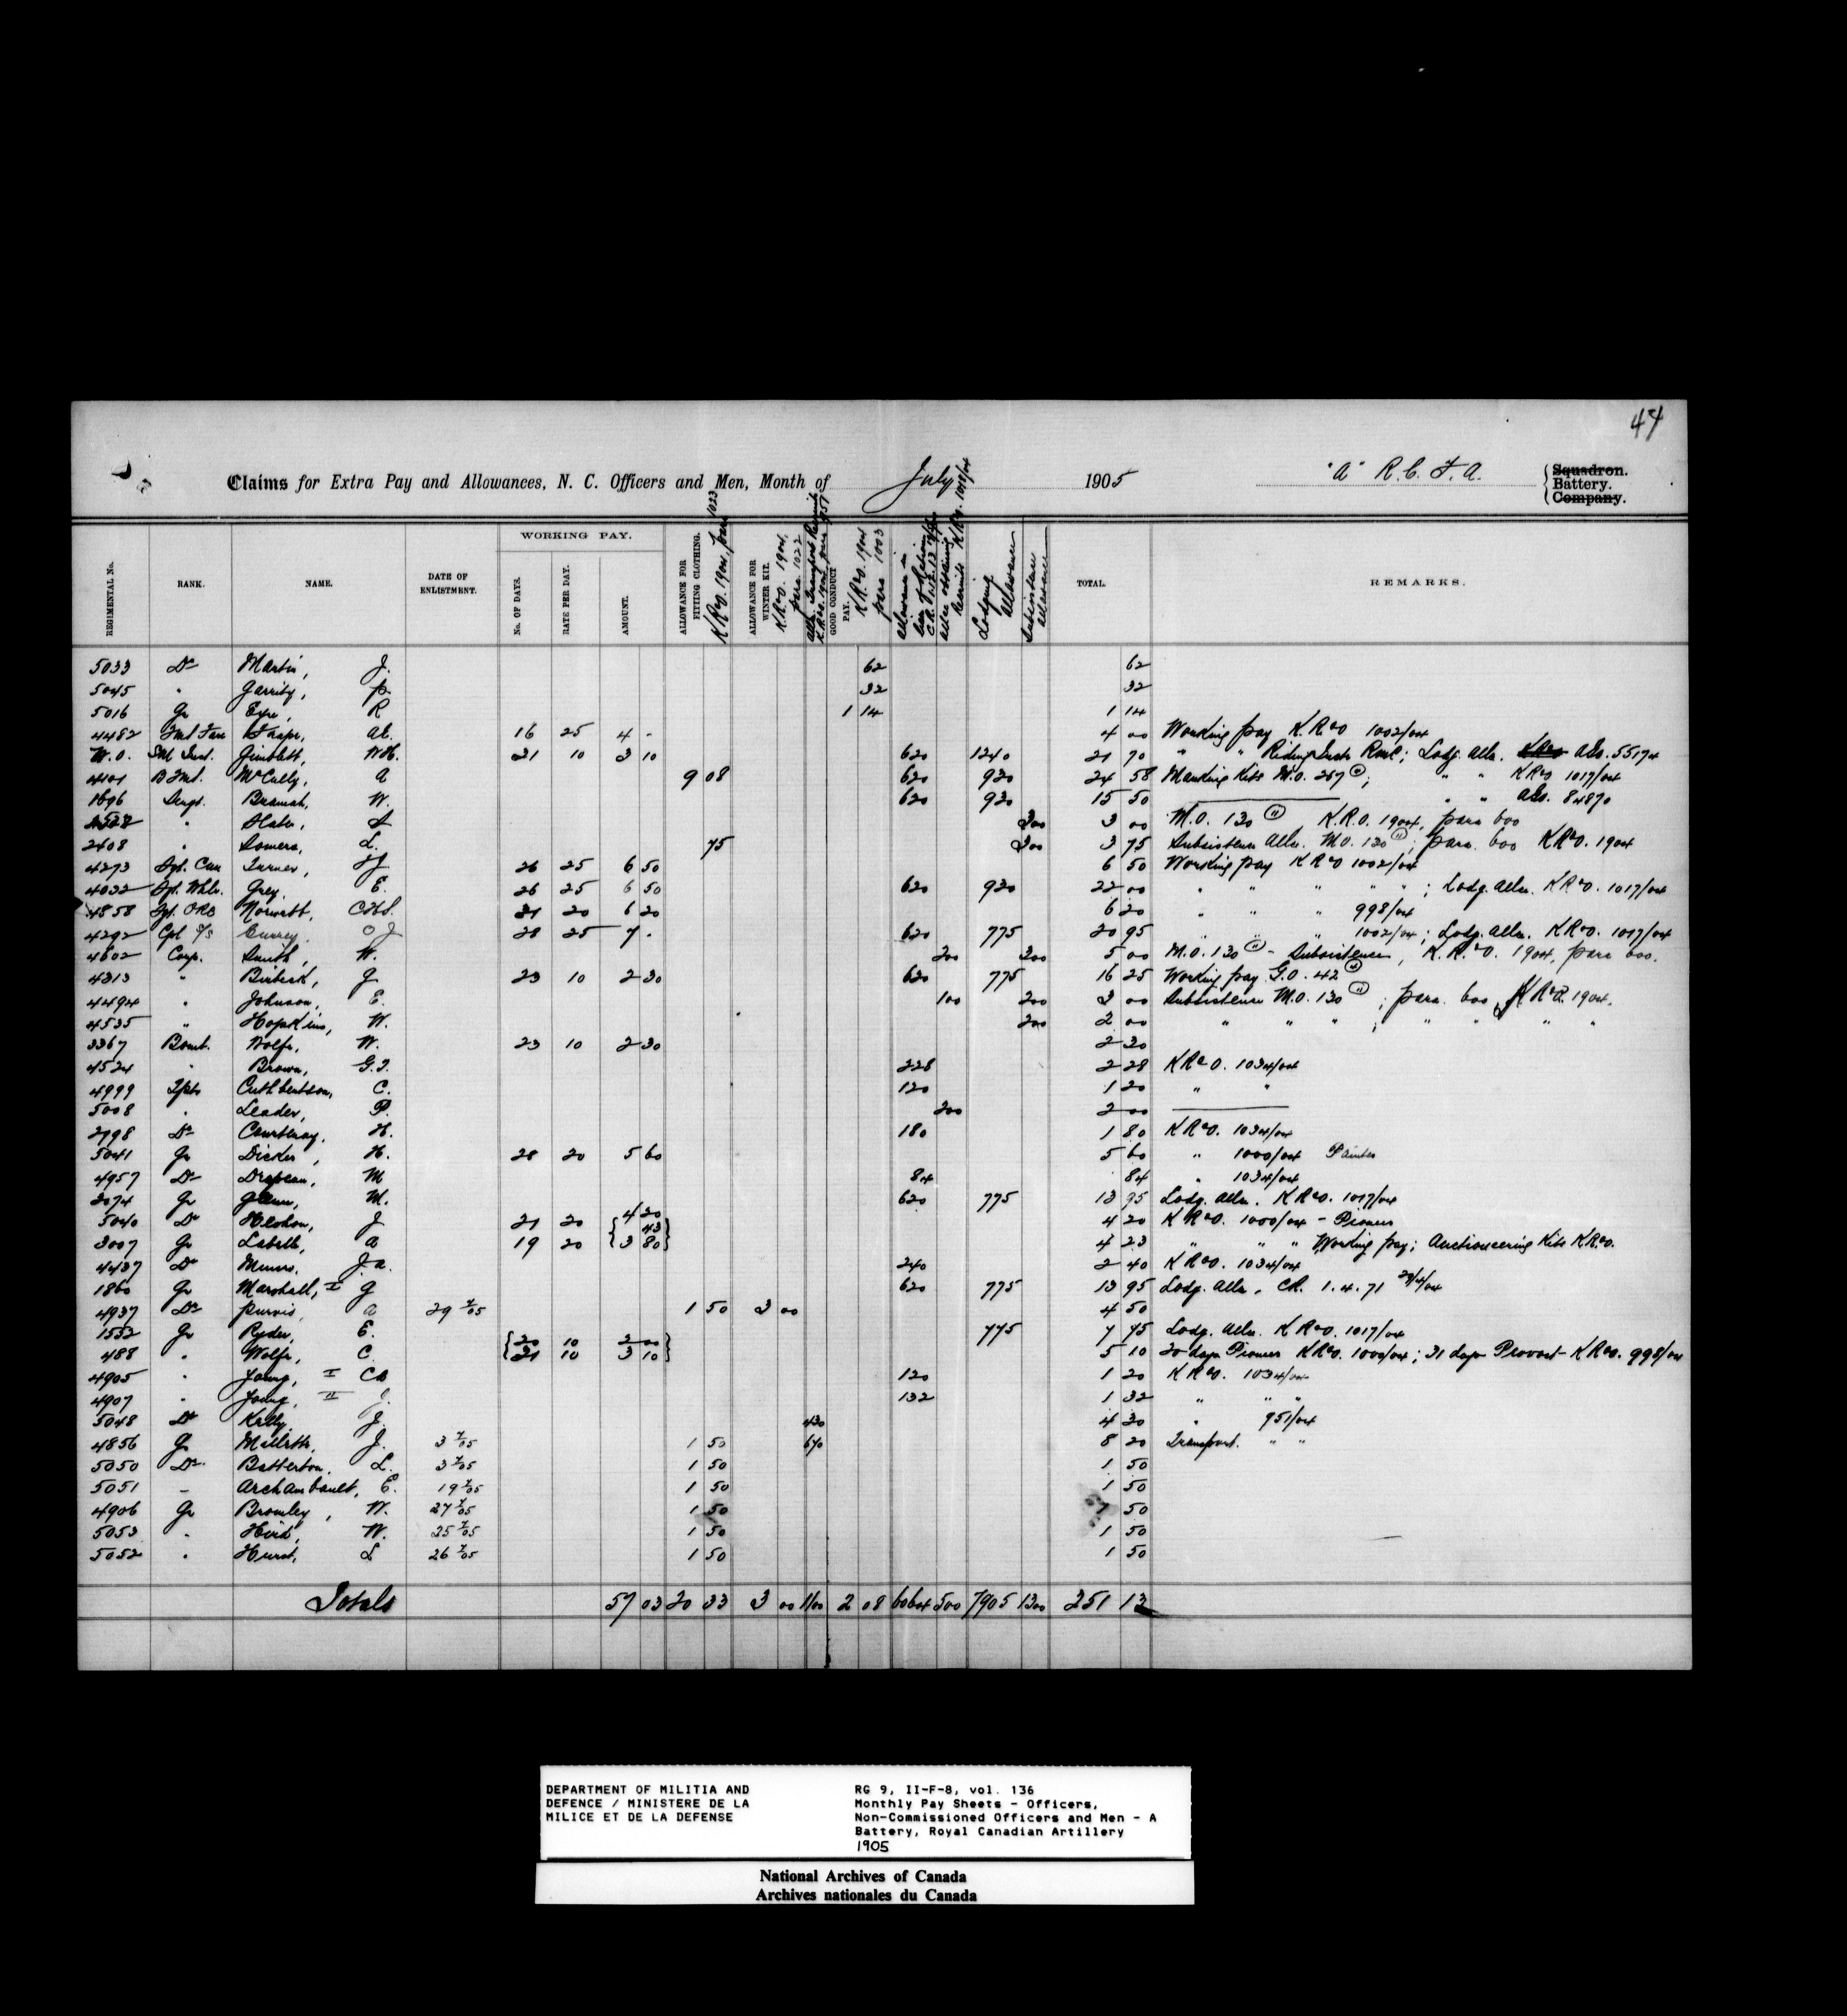 44
Claims for Extra Pay and Allowances, N. C. Officers and Men, Month of July 1905 "A" R.C.F.A. Squadron. Battery. Company.
REGIMENTAL No. RANK. NAME. DATE OF ENLISTMENT. WORKING PAY. No. OF DAYS. RATE PER DAY. AMOUNT. ALLOWANCE FOR FITTING CLOTHING. KR&O. 1904, para 1033 ALLOWANCE FOR WINTER KIT. KR&O. 1904, para 1022 GOOD CONDUCT PAY. KR&O. 1904 para 1003 Lodging allowance Subsistence allowance TOTAL. REMARKS.
5033 Dr Martin, J. 62 62
5045 " Garrity, P. 32 32
5016 Gr Eyre, R 1 14 1 14
4482 16 25 4 - 4 00 Working pay K.R&O 1002/04
W.O. Gimblett, W.H. 31 10 3 10 620 1240 21 70 " " Riding Inst. RMC; Lodg. Alln. KR&O
4101 McCully, A 9 08 620 920 24 58 Marking Kits M.O. 267; " " KR&O 1017/04
1696 Sergt. Bramah, W. 620 930 15 50 " "
" Slater, 300 3 00 M.O. 130 K.R.O. 1904, para 600
2408 " Somers, L. 75 300 3 75 Subsistence Alln. M.O. 130, para. 600 KR&O. 1904
4273 Turner, 26 25 6 50 6 50 Working pay KR&O 1002/04
4032 Sgt. Whlr. Grey, E. 26 25 6 50 620 930 22 00 " " " " " ; Lodg. Alln. KR&O. 1017/04
4858 Norwebb, 31 20 6 20 6 20 " " " 998/04
4292 Cpl Currey, O J 28 25 7 - 620 775 20 95 1002/04; Lodg. Alln. KR&O. 1017/04
4602 Corp. Smith, W. 200 300 5 00 M.O. 130 - Subsistence, K.R.&O. 1904, para 600.
4313 " Birbeck, G 23 10 2 30 620 775 16 25 Working pay G.O. 42
4494 " Johnson, E. 100 200 3 00 Subsistence M.O. 130; para. 600, KR&O. 1904.
4535 " Hopkins, W. 200 2 00 " " " ; " " " "
3367 Bomb. Wolfe, W. 23 10 2 30 2 30
4524 " Brown, G.T. 228 2 28 KR&O. 1034/04
4999 Tptr Cuthbertson, C. 120 1 20 " "
5008 " Leader, P. 200 2 00
2798 Dr Courtenay, H. 180 1 80 KR&O. 1034/04
5041 Gr Dicker, H. 28 20 5 60 5 60 " 1000/04 Painter
4957 Dr Drapeau, M 84 84 " 1034/04
2074 Gr Glenn, M. 620 775 13 95 Lodg. Alln. KR&O. 1017/04
5040 Dr J 21 20 4 20 4 20 KR&O. 1000/04 - Pioneer
3007 Gr Labelle, A 19 20 43 3 80 4 23 " " " Working pay; Auctioneering Kits KR&O.
4437 Dr Munro, J.A. 240 2 40 KR&O. 1034/04
1860 Gr Marshall, I G 620 775 13 95 Lodg. Alln. CR. 1.4.71
4937 Dr Purvis, A 29 7/05 1 50 3 00 4 50
1552 Gr Ryder, E. 775 7 75 Lodg. Alln. KR&O. 1017/04
488 " Wolfe, C. 20 10 2 00 31 10 3 10 5 10 20 days Pioneer KR&O. 1000/04; 31 days Provost - KR&O. 998/04
4905 " Young, I 120 1 20 KR&O. 1034/04
4907 " Young, II J. 132 1 32 " " "
5048 Dr Kelly, J. 430 4 30 " 951/04
4856 Gr Millette, J. 3 7/05 1 50 670 8 20 Transport. " "
5050 Dr Batterton, L. 3 7/05 1 50 1 50
5051 - Archambault, E. 19 7/05 1 50 1 50
4906 Gr Bromley, W. 27 7/05 1 50 1 50
5053 " Hurd, W. 25 7/05 1 50 1 50
5052 " Hurst, L 26 7/05 1 50 1 50
Totals 57 03 20 33 3 00 1100 2 08 6064 500 7905 1300 251 13
DEPARTMENT OF MILITIA AND DEFENCE / MINISTERE DE LA MILICE ET DE LA DEFENSE
RG 9, II-F-8, vol. 136
Monthly Pay Sheets - Officers,
Non-Commissioned Officers and Men - A
Battery, Royal Canadian Artillery
1905
National Archives of Canada
Archives nationales du Canada